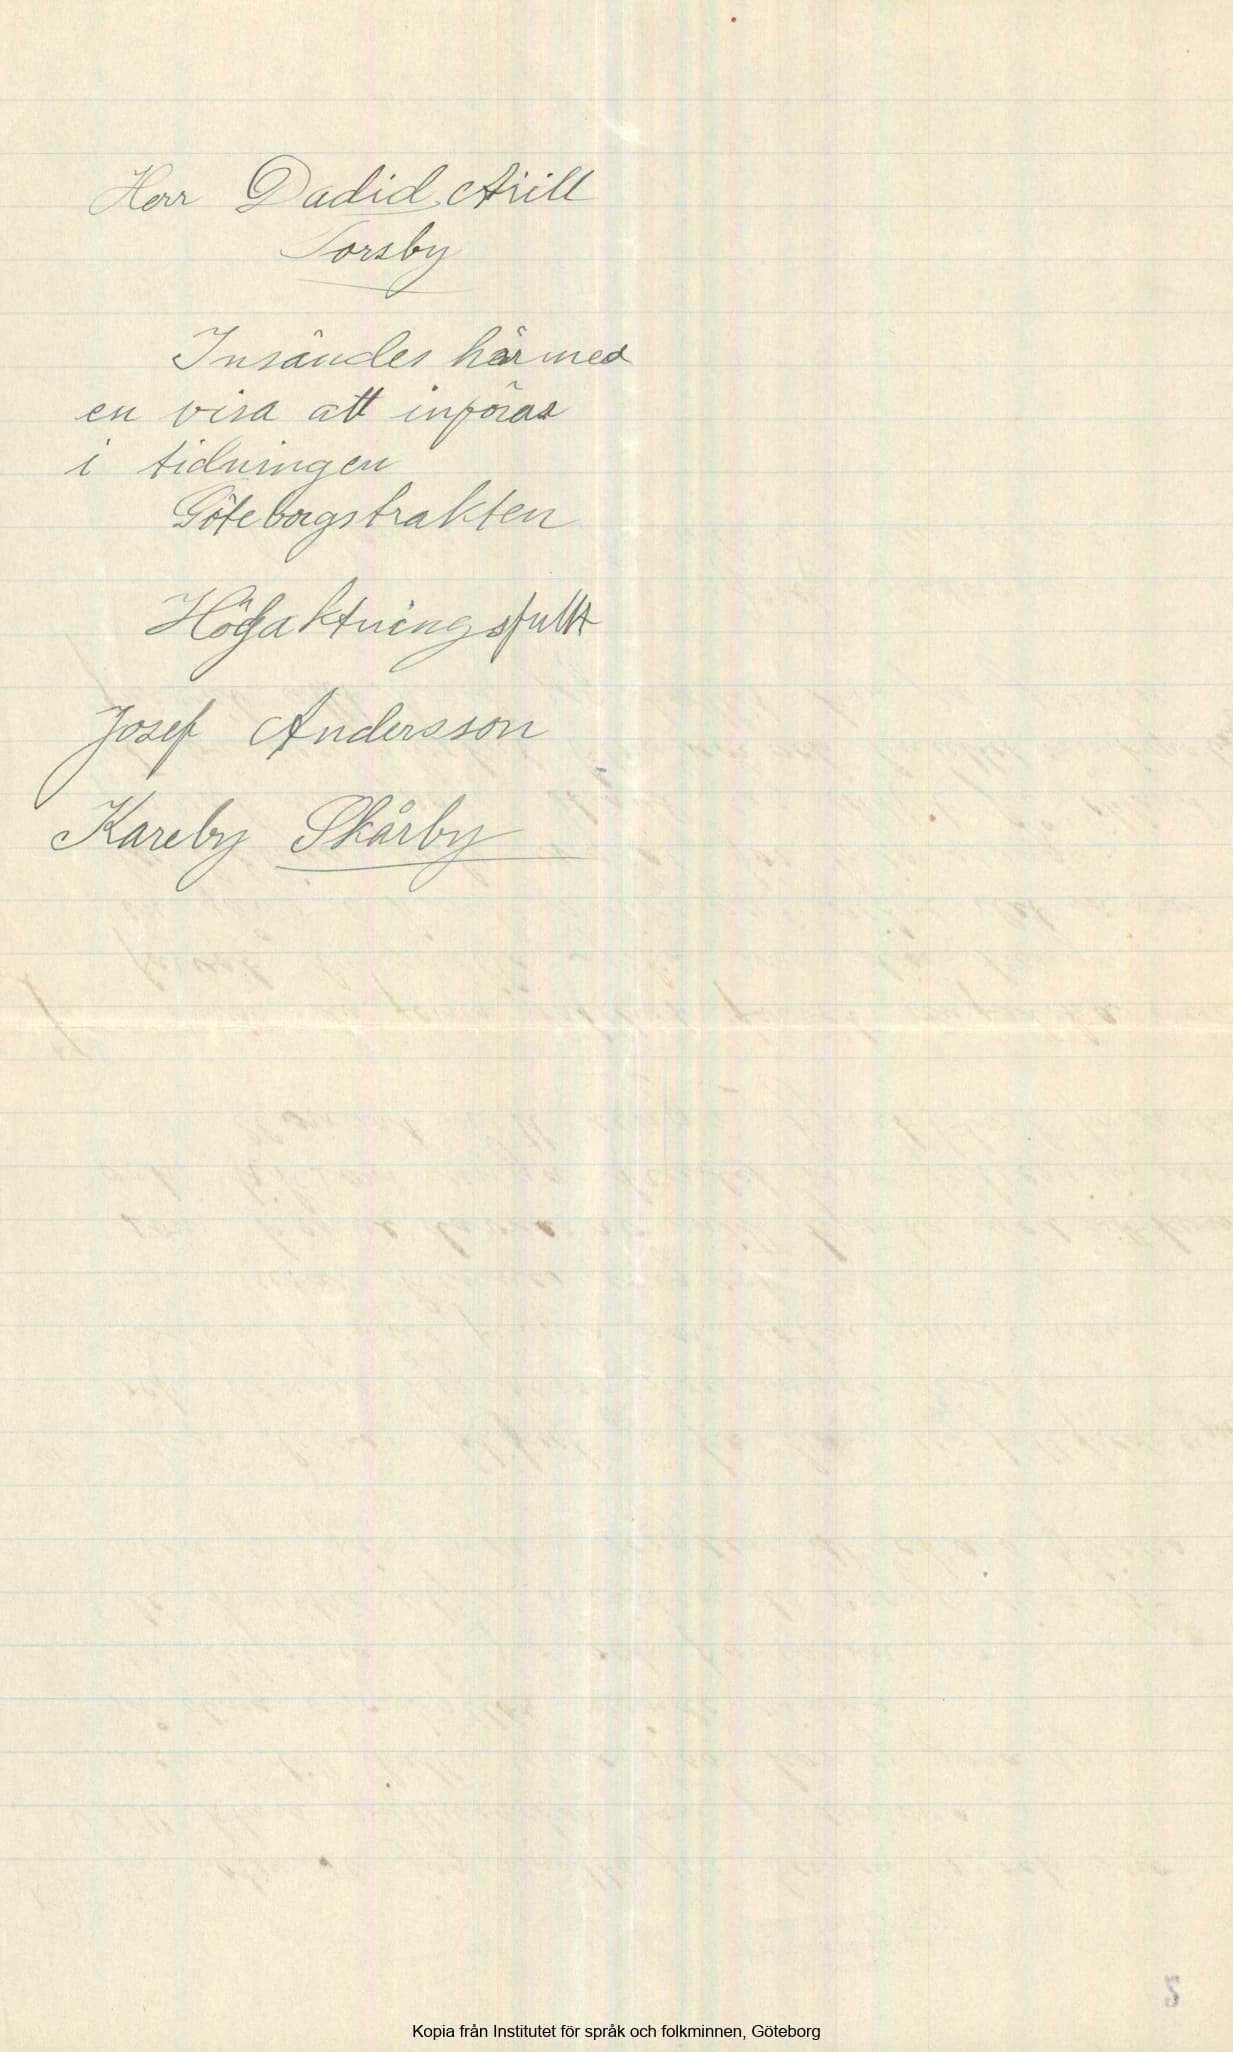 Herr Dadid Arill
Torsby
Insändes härmed
en visa att införas
i tidningen
Göteborgstrakten
Högaktningsfullt
Josef Andersson
Kareby Skårby
Kopia från Institutet för språk och folkminnen, Göteborg